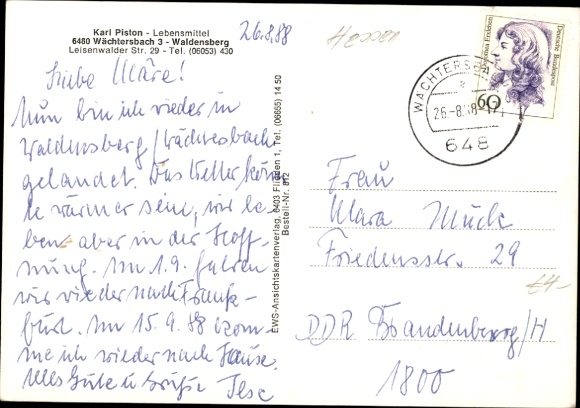 Karl Piston - Lebensmittel
6480 Wächtersbach 3 - Waldensberg
Leisenwalder Str. 29 - Tel. (06053) 430
26.8.88
Hessen
Liebe Kläre!
Nun bin ich wieder in
Waldensberg/Wächtersbach
gelandet. Das Wetter könn-
te wärmer sein, wir le-
ben aber in der Hoff-
nung. Am 1.9. fahren
wir wieder nach Frank-
furt. Am 15.9.88 kom-
me ich wieder nach Hause.
Alles Gute u. Grüße Ilse
EWS-Ansichtskartenverlag, 6403 Flieden 1, Tel. (06655) 14 50
Bestell-Nr. 812
Dorothea Erxleben
Deutsche Bundespost
60
WÄCHTERSB
26.-8.88-17
648
Frau
Klara Muck
Friedensstr. 29
DDR Brandenberg/H
1800